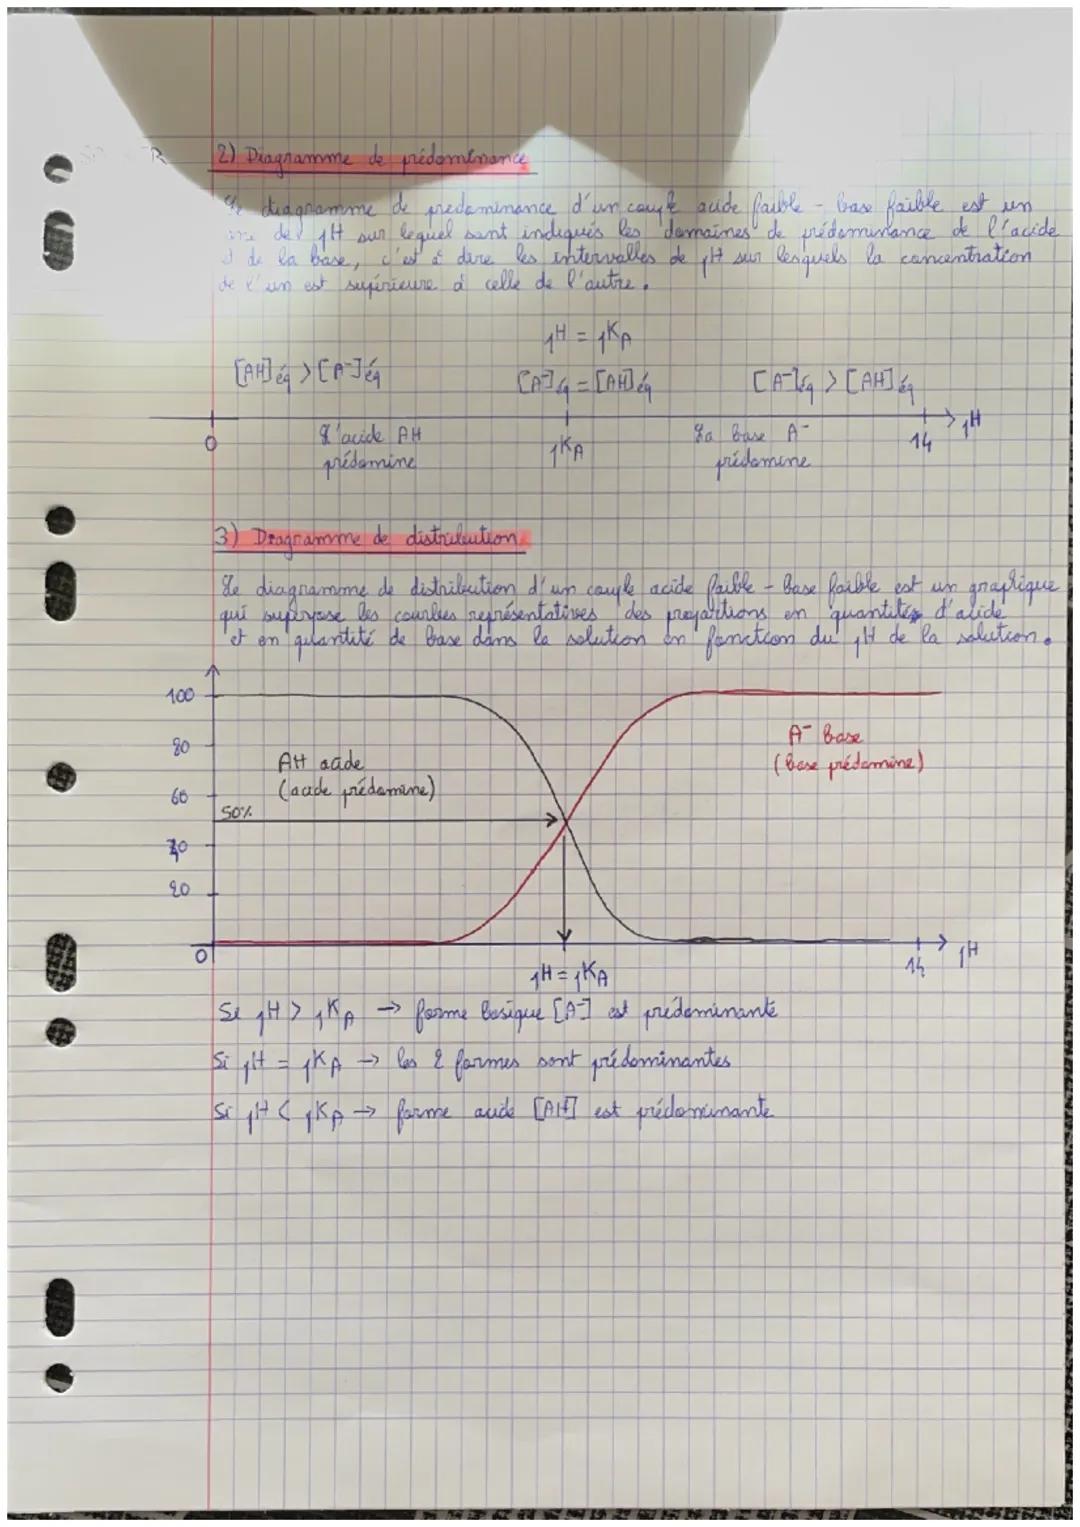 2) Diagramme de prédominance
Le diagramme de predominance d'un couple acide faible - base faible est un
axe de pH sur lequel sont indiqués les domaines de prédominance de l'acide
et de la base, c'est à dire les intervalles de pH sur lesquels la concentration
de l'un est supérieure à celle de l'autre.
pH = pKA
[AH]éq > [A-]éq [A-]éq = [AH]éq [A-]éq > [AH]éq
0 L'acide AH prédomine pKA La base A- prédomine 14 pH
3) Diagramme de distribution
Le diagramme de distribution d'un couple acide faible - Base faible est un graphique
qui superpose les courbes représentatives des proportions en quantités d'acide
et en quantité de base dans la solution en fonction du pH de la solution.
100
80
60
50%
40
20
0
AH acide
(acide prédomine)
A- base
(base prédomine)
pH = pKA
14
pH
Si pH > pKA → forme basique [A-] est prédominante
Si pH = pKA → les 2 formes sont prédominantes
Si pH < pKA → forme acide [AH] est prédominante